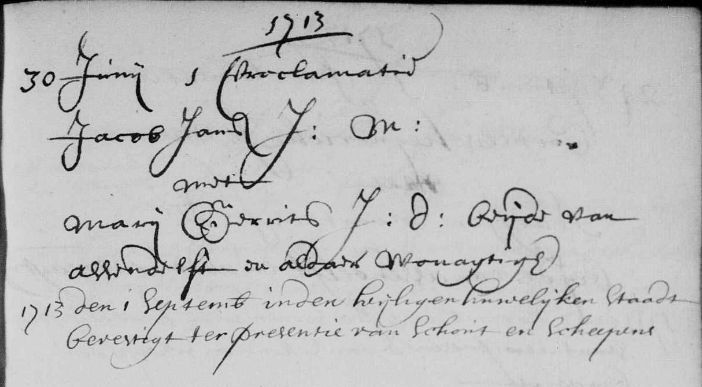 1713
30 Junij 1 Proclamatie
Jacob Jans J: M:
met
Marij Gerrits J: d: beijde van
assendelft en aldaer wonagtigh
1713 den 1 Septemb in den heijligen huwelijken staadt
bevestigt ter presentie van Schout en Scheepens